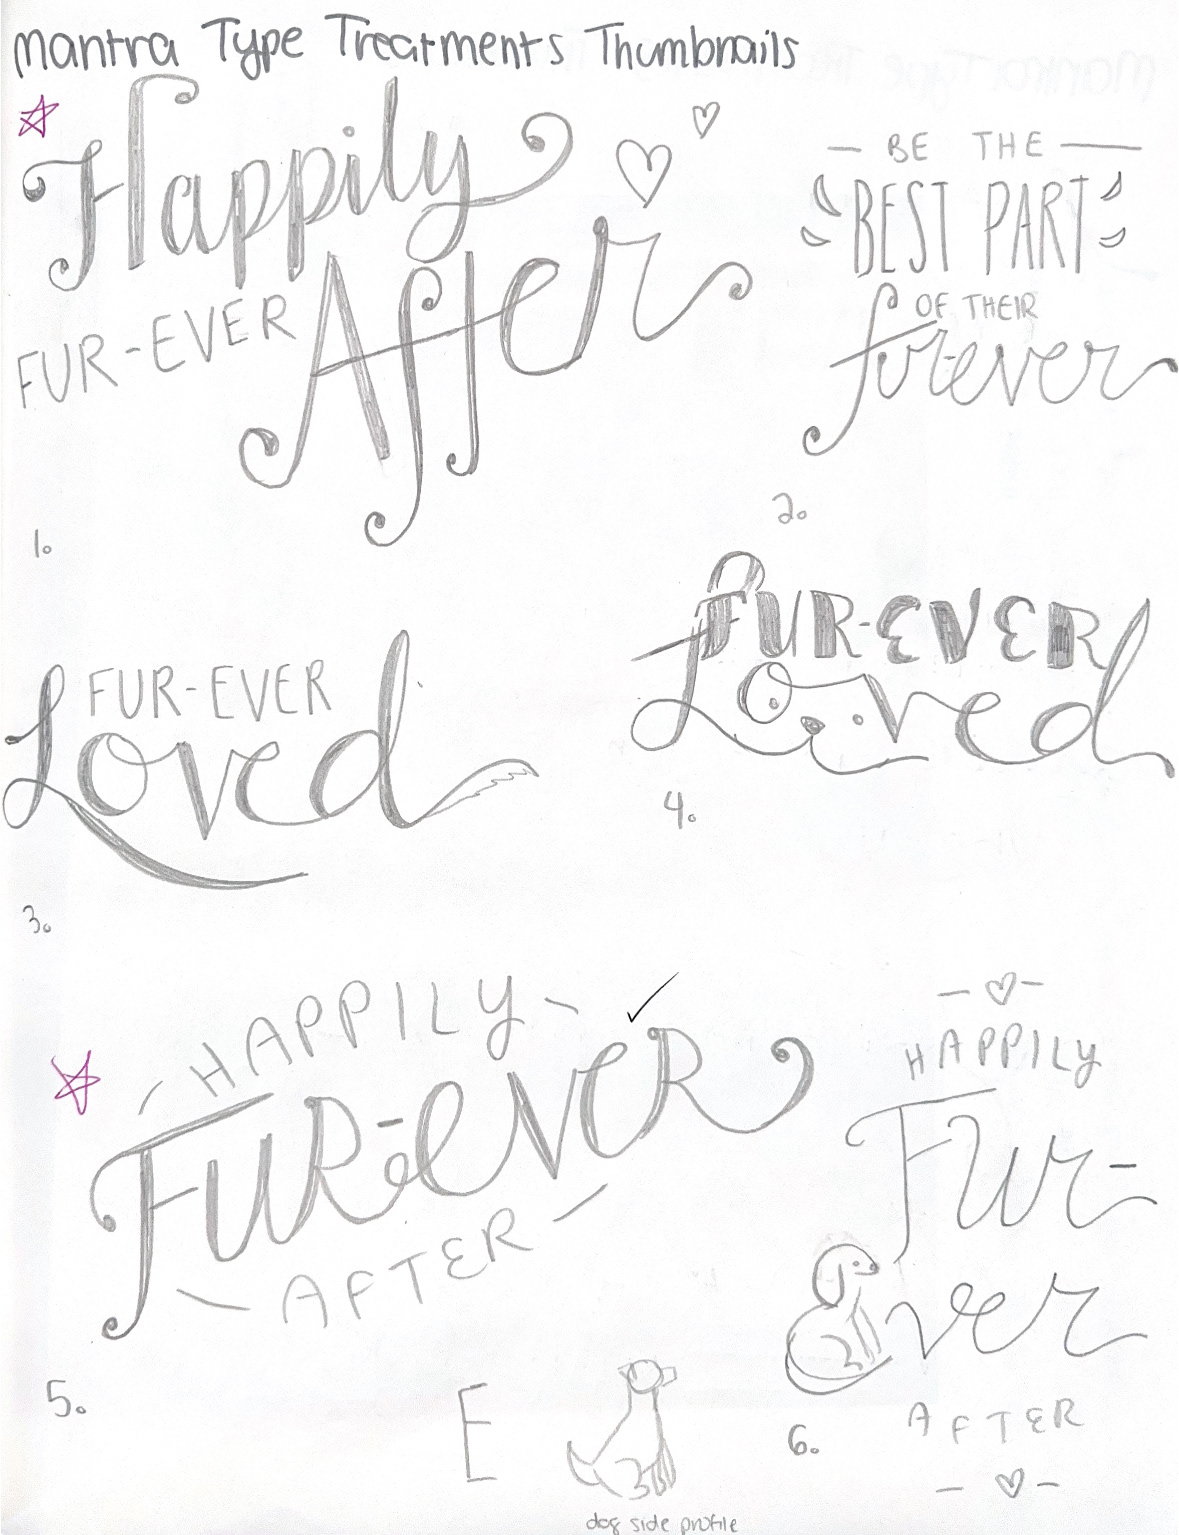 Mantra Type Treatments Thumbnails
Happily
FUR-EVER
After
1.
BE THE
BEST PART
OF THEIR
fur-ever
2.
FUR-EVER
Loved
3.
FUR-EVER
Loved
4.
HAPPILY
FUR-EVER
AFTER
5.
HAPPILY
Fur-
ver
AFTER
6.
E
dog side profile